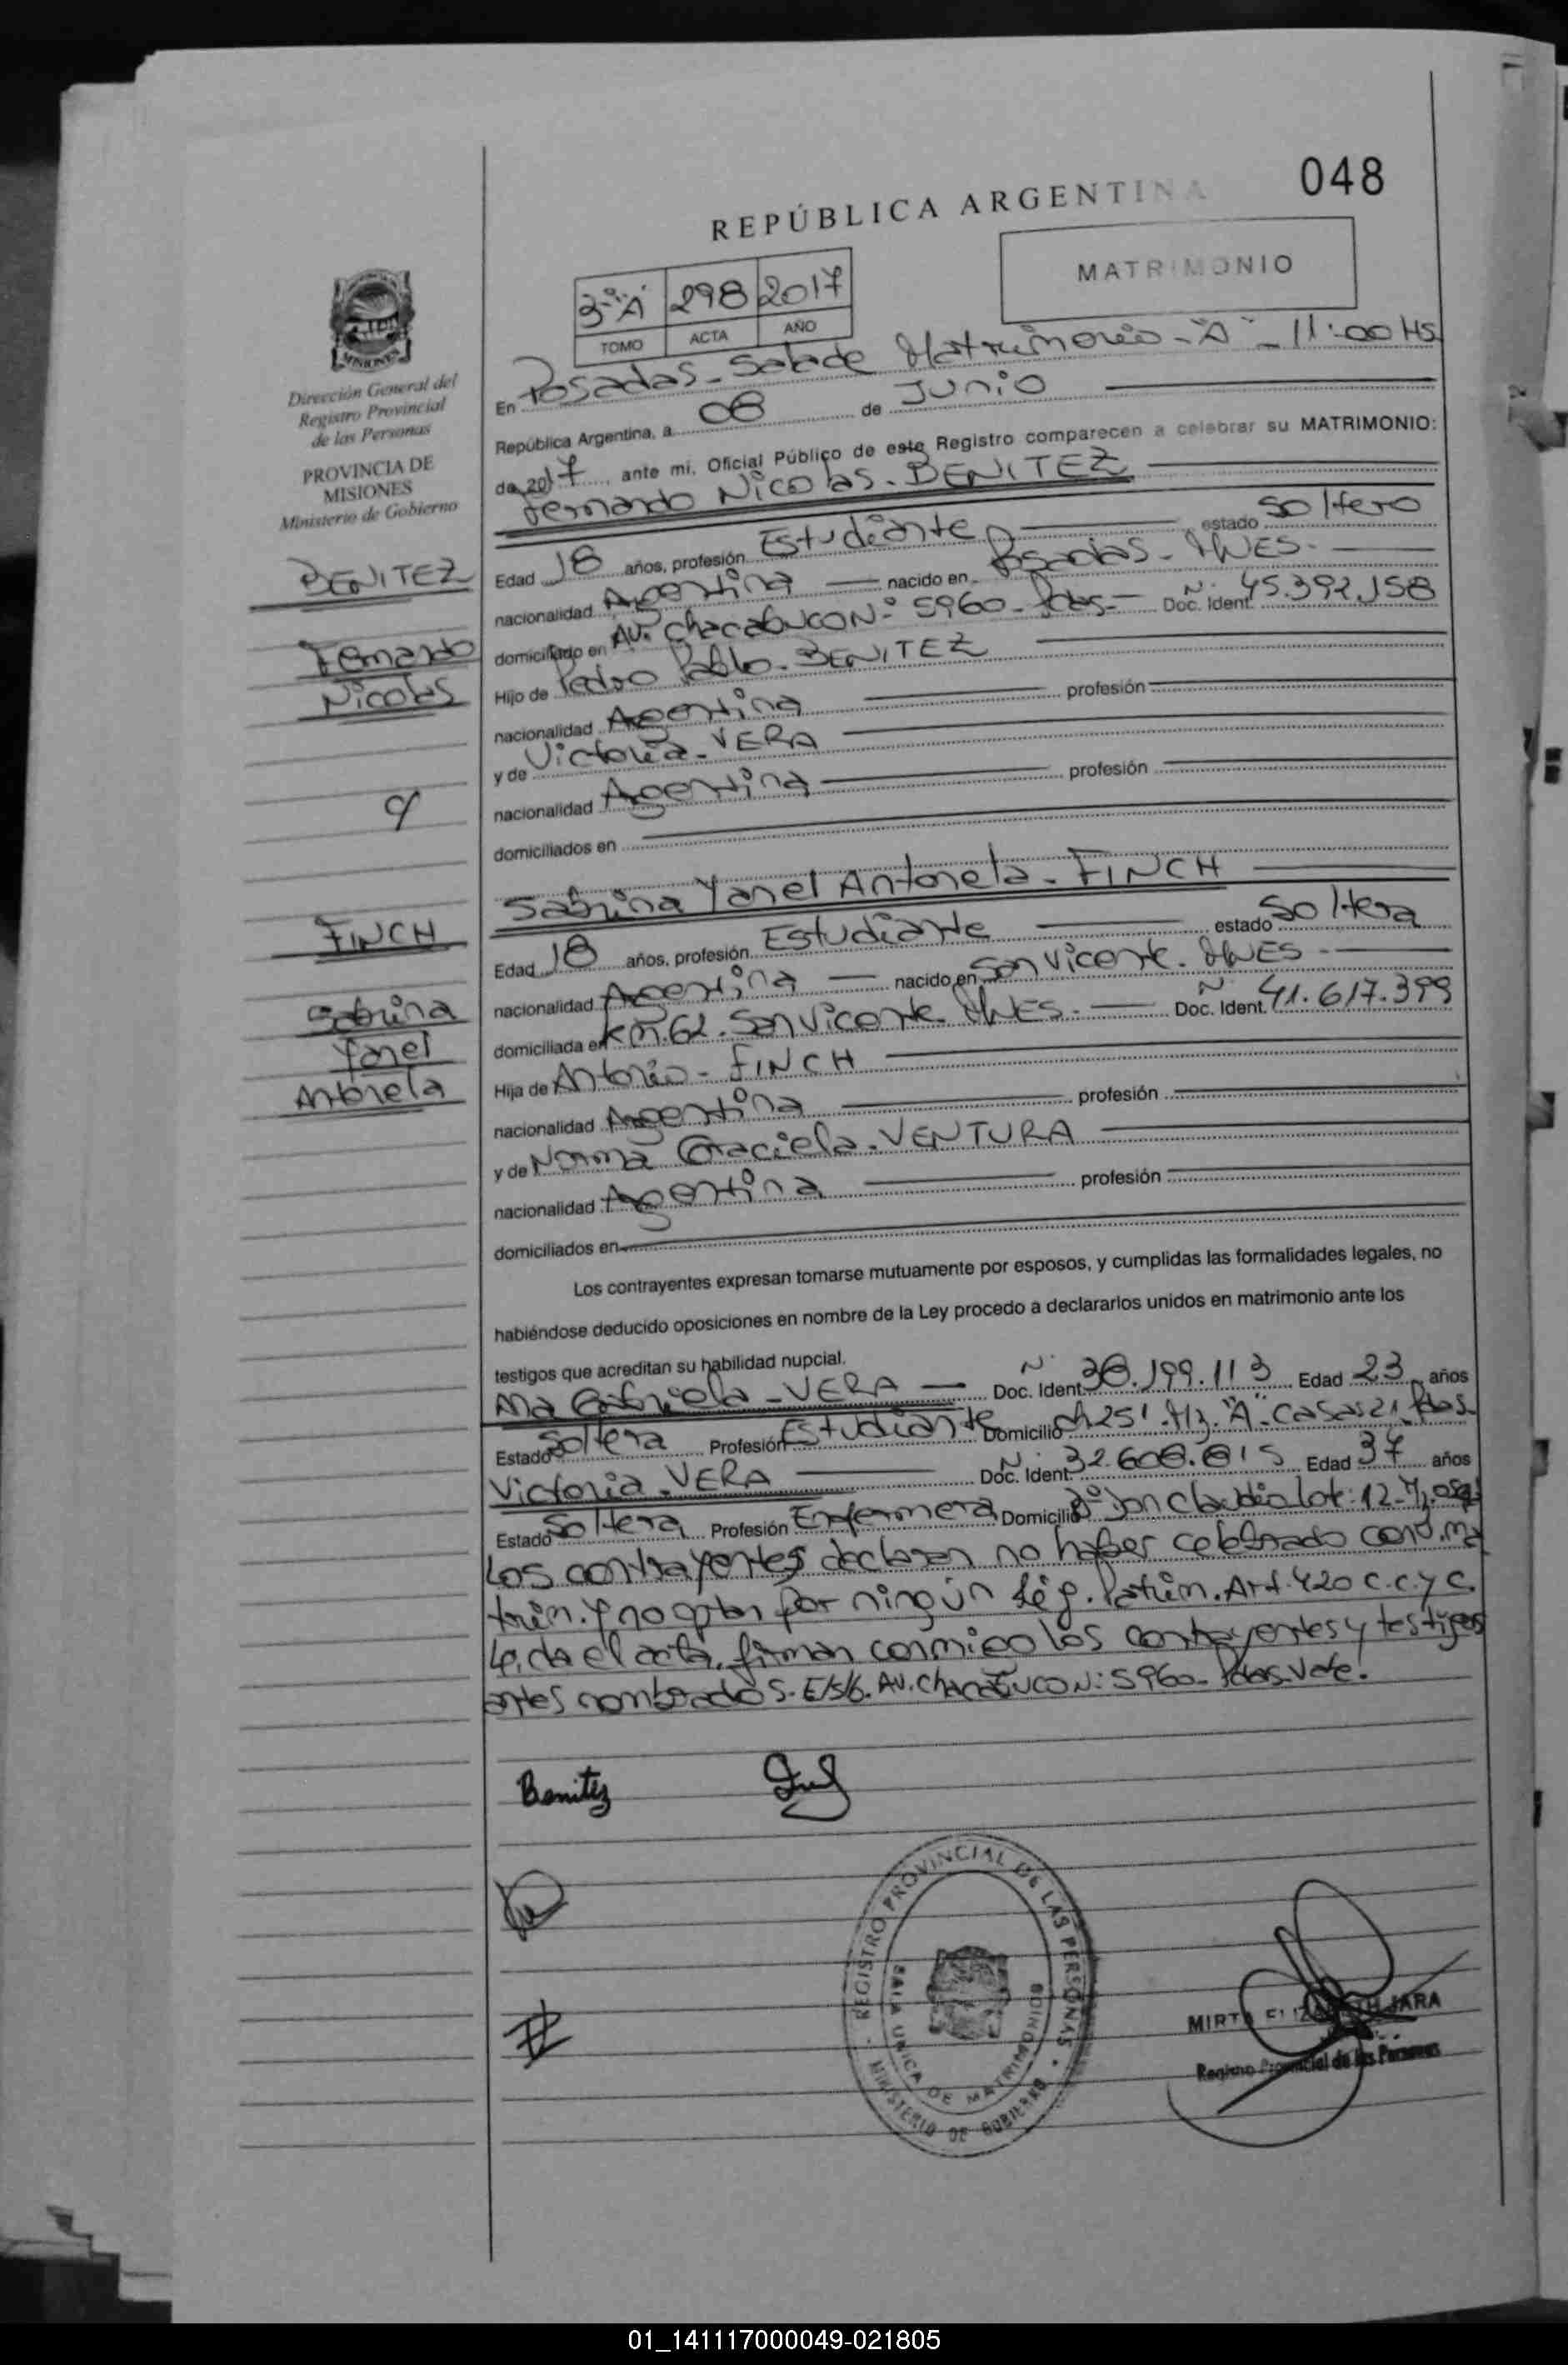 048
REPÚBLICA ARGENTINA
MATRIMONIO
3º "A" 298 2017
TOMO ACTA AÑO
MISIONES
Dirección General del
Registro Provincial
de las Personas
PROVINCIA DE
MISIONES
Ministerio de Gobierno
En Posadas - Sala de Matrimonio - "A" - 11:00 HS
República Argentina, a 08 de Junio
de 2017 ante mi, Oficial Público de este Registro comparecen a celebrar su MATRIMONIO:
Fernando Nicolas - BENITEZ
BENITEZ
Fernando
Nicolas
Edad 18 años, profesión Estudiante estado Soltero
nacionalidad Argentina nacido en Posadas - MNES -
domiciliado en AV. Chacabuco Nº 5960 - Pdas - Doc. Ident. Nº 45.392.158
Hijo de Pedro Pablo - BENITEZ
nacionalidad Argentina profesión
y de Victoria - VERA
nacionalidad Argentina profesión
domiciliados en
y
Sabrina Yanel Antonela - FINCH
FINCH
Sabrina
Yanel
Antonela
Edad 18 años, profesión Estudiante estado Soltera
nacionalidad Argentina nacido en San Vicente - MNES -
domiciliada en Km. 62 - San Vicente - MNES - Doc. Ident. Nº 41.617.399
Hija de Antonio - FINCH
nacionalidad Argentina profesión
y de Norma Graciela - VENTURA
nacionalidad Argentina profesión
domiciliados en
Los contrayentes expresan tomarse mutuamente por esposos, y cumplidas las formalidades legales, no
habiéndose deducido oposiciones en nombre de la Ley procedo a declararlos unidos en matrimonio ante los
testigos que acreditan su habilidad nupcial.
Ma Gabriela - VERA Doc. Ident. Nº 38.199.113 Edad 23 años
Estado Soltera Profesión Estudiante Domicilio Ch 251 - Mz. "A" - Casa 21 Pdas
Victoria - VERA Doc. Ident. Nº 32.608.815 Edad 37 años
Estado Soltera Profesión Enfermera Domicilio Bº Don Claudio lote: 12 - Mz.
Los contrayentes declaran no haber celebrado conv. ma
trim. y no optan por ningún Rég. Patrim. Art. 420 C.C. y C.
Leida el acta, firman conmigo los contrayentes y testigos
antes nombrados. E/s/b. AV. Chacabuco N: 5960 - Pdas. Vale!
Benitez
REGISTRO PROVINCIAL DE LAS PERSONAS
SALA UNICA DE MATRIMONIOS
MINISTERIO DE GOBIERNO
MIRTA ELIZABETH JARA
Registro Provincial de las Personas
01_141117000049-021805